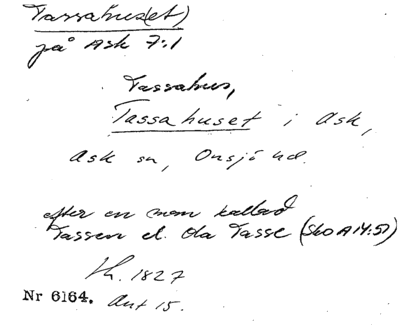 Tassahus(et)
på Ask 7:1
Tassahus,
Tassahuset i Ask,
Ask sn, Onsjö hd.
efter en man kallad
Tassen el. Ola Tasse (Sko A 14:57)
1827
Nr 6164. Ant 15.